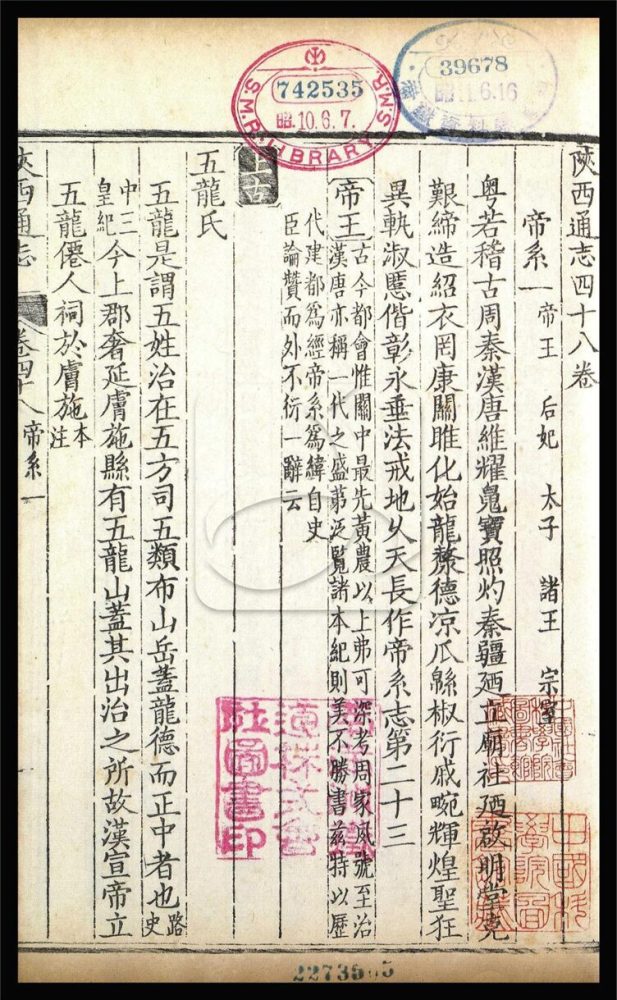 陝西通志四十八卷
帝系一 帝王 后妃 太子 諸王 宗室
粵若稽古周秦漢唐維耀鳧寶照灼秦疆廼立廟社廼啟明堂克
艱締造紹衣罔康關雎化始龍漦德凉瓜緜椒衍戚畹輝煌聖狂
異軌淑慝偕彰永垂法戒地久天長作帝系志第二十三
帝王 古今都會惟關中最先黃農以上弗可深考周家夙號至治
漢唐亦稱一代之盛第泛覽諸本紀則美不勝書兹特以歷
代建都為經帝系為緯自史
臣論贊而外不衍一辭云
上古
五龍氏
五龍是謂五姓治在五方司五類布山岳蓋龍德而正中者也 路史
中三皇紀 今上郡奢延膚施縣有五龍山蓋其出治之所故漢宣帝立
五龍僊人祠於膚施 本注
陝西通志 卷四十八 帝系一
S.M.R. LIBRARY S.M.R.
742535
昭10.6.7.
39678
昭11.6.16